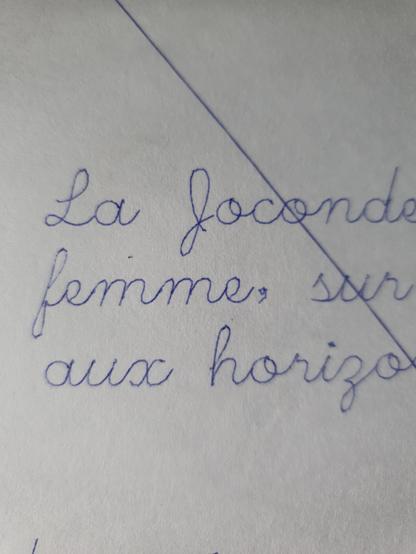 La Joconde
femme, sur
aux horizo